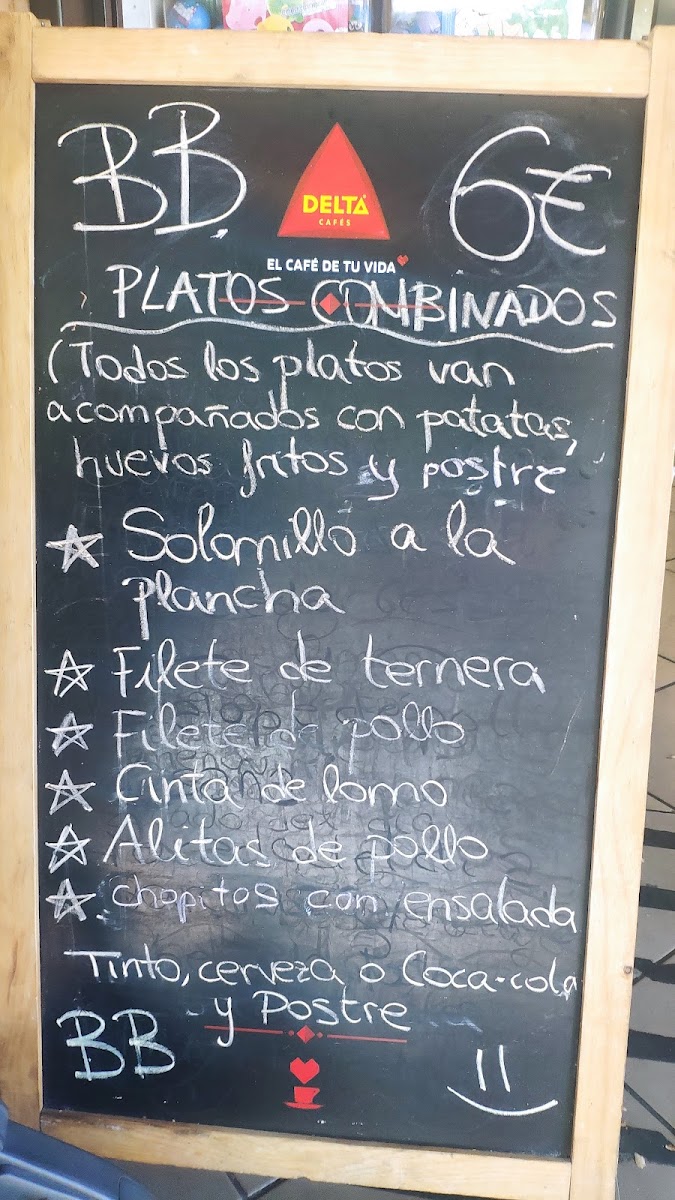 BB
DELTA
CAFÉS
6€
EL CAFÉ DE TU VIDA
PLATOS COMBINADOS
(Todos los platos van
acompañados con patatas,
huevos fritos y postre
Solomillo a la
plancha
Filete de ternera
Filete de pollo
Cinta de lomo
Alitas de pollo
Chopitos con ensalada
Tinto, cerveza o Coca-cola
y Postre
BB